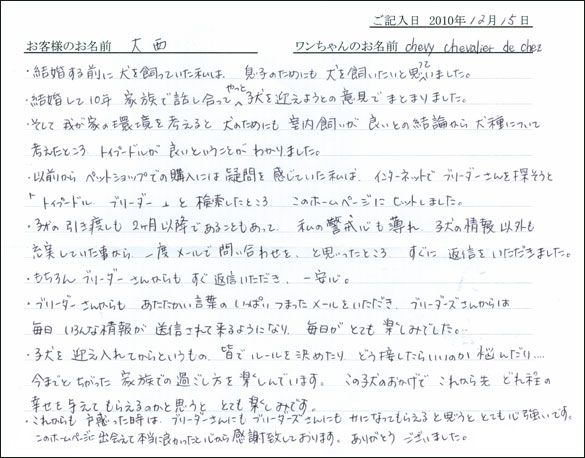 ご記入日 2010年 12月 15日
お客様のお名前 大西 ワンちゃんのお名前 chevy chevalier de chez
・結婚する前に 犬を飼っていた私は、 息子のためにも 犬を飼いたいと思っていました。
・結婚して10年 家族で話し合って やっと 子犬を迎えようとの意見で まとまりました。
・そして 我が家の環境を考えると 犬のためにも 室内飼いが 良いとの結論から 犬種について
考えたところ トイプードルが 良いということが わかりました。
・以前から ペットショップでの購入には 疑問を 感じていた私は、 インターネットで ブリーダーさんを探そうと
「トイプードル ブリーダー 」と 検索したところ このホームページに ヒットしました。
・子犬の 引き渡しも 2ヶ月以降であることもあって、 私の警戒心も薄れ 子犬の情報以外も
充実していた事から 一度メールで問い合わせを、 と思ったところ すぐに 返信をいただきました。
・もちろん ブリーダーさんからも すぐ返信いただき、 一安心。
・ブリーダーさんからも あたたかい言葉の いっぱいつまったメールをいただき ブリーダーズさんからは
毎日 いろんな情報が 送信されて来るようになり、 毎日が とても 楽しみでした。
・子犬を 迎え入れてからというもの、皆でルールを決めたり どう接したらいいのか 悩んだり....
今までと ちがった 家族での過ごし方を楽しんでいます。 この子犬のおかげで これから先 どれ程の
幸せを与えてもらえるのかと思うと とても楽しみです。
・これからも 戸惑った時は、ブリーダーさんにも ブリーダーズさんにも 力になってもらえると思うと とても心強いです。
このホームページに 出会えて本当に良かったと心から 感謝致しております。 ありがとう ございました。